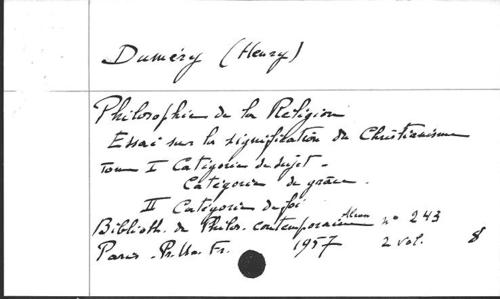 Duméry (Henry)
Philosophie de la Religion
Essai sur la signification du Christianisme
Tome I Catégorie de sujet -
Catégorie de grâce.
II Catégorie de foi
Biblioth. de Philos. contemporaine Alcan n° 243
Paris. Pr. Un. Fr. 1957 2 vol. 8